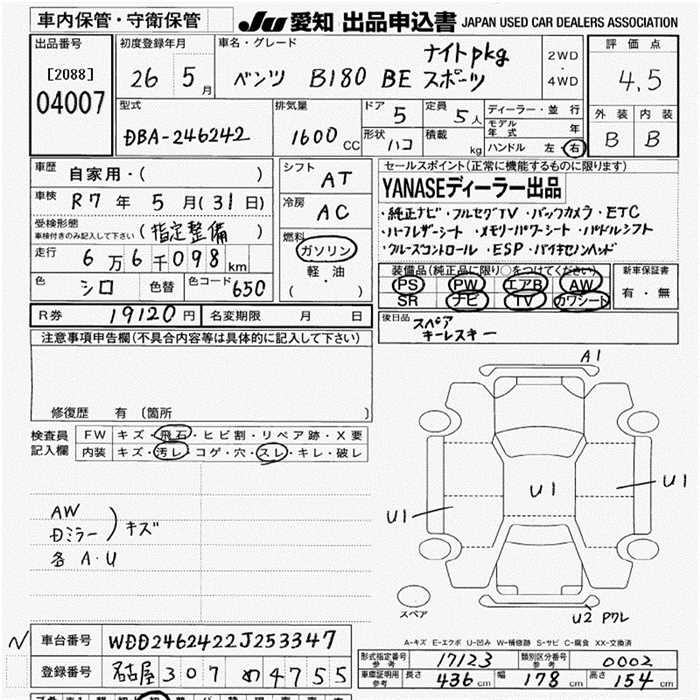 車内保管・守衛保管
JU 愛知 出品申込書 JAPAN USED CAR DEALERS ASSOCIATION
出品番号
[2088]
04007
初度登録年月
26 5月
車名・グレード
ナイトpkg
ベンツ B180 BE スポーツ
2WD
・
4WD
評価点
4.5
外装 内装
B B
型式
DBA-246242
排気量
1600CC
ドア 5
形状 ハコ
定員 5人
積載 kg
ディーラー・並行
モデル年式 年
ハンドル 左・右
車歴 自家用・( )
車検 R7年 5月(31日)
受検形態
車検付きのみ記入して下さい (指定整備)
走行 6万6千098km
色 シロ 色替 色コード 650
シフト AT
冷房 AC
燃料
ガソリン
軽・油
( ・ )
セールスポイント(正常に機能するものに限ります)
YANASEディーラー出品
・純正ナビ・フルセグTV・バックカメラ・ETC
・ハーフレザーシート・メモリーパワーシート・パドルシフト
・クルーズコントロール・ESP・バイキセノンヘッド
装備品(純正品に限り○をつけてください)
PS PW エアB AW
SR ナビ TV カワシート
新車保証書
有・無
R券 19120円 名変期限 月 日
後日品 スペア
キーレスキー
注意事項申告欄(不具合内容等は具体的に記入して下さい)
修復歴 有 (箇所 )
検査員記入欄
FW キズ・飛石・ヒビ割・リペア跡・X要
内装 キズ・汚レ・コゲ・穴・スレ・キレ・破レ
AW
Dミラー
各 A・U
) キズ
A1
U1
U1
U1
スペア
U2 Pワレ
A-キズ E-エクボ U-凹み W-補修跡 S-サビ C-腐食 XX-交換済
車台番号 WDD2462422J253347
登録番号 名古屋 307 め 4755
形式指定番号 参考 17123 類別区分番号 参考 0002
車庫証明用 参考 長さ 436cm 幅 178cm 高さ 154cm